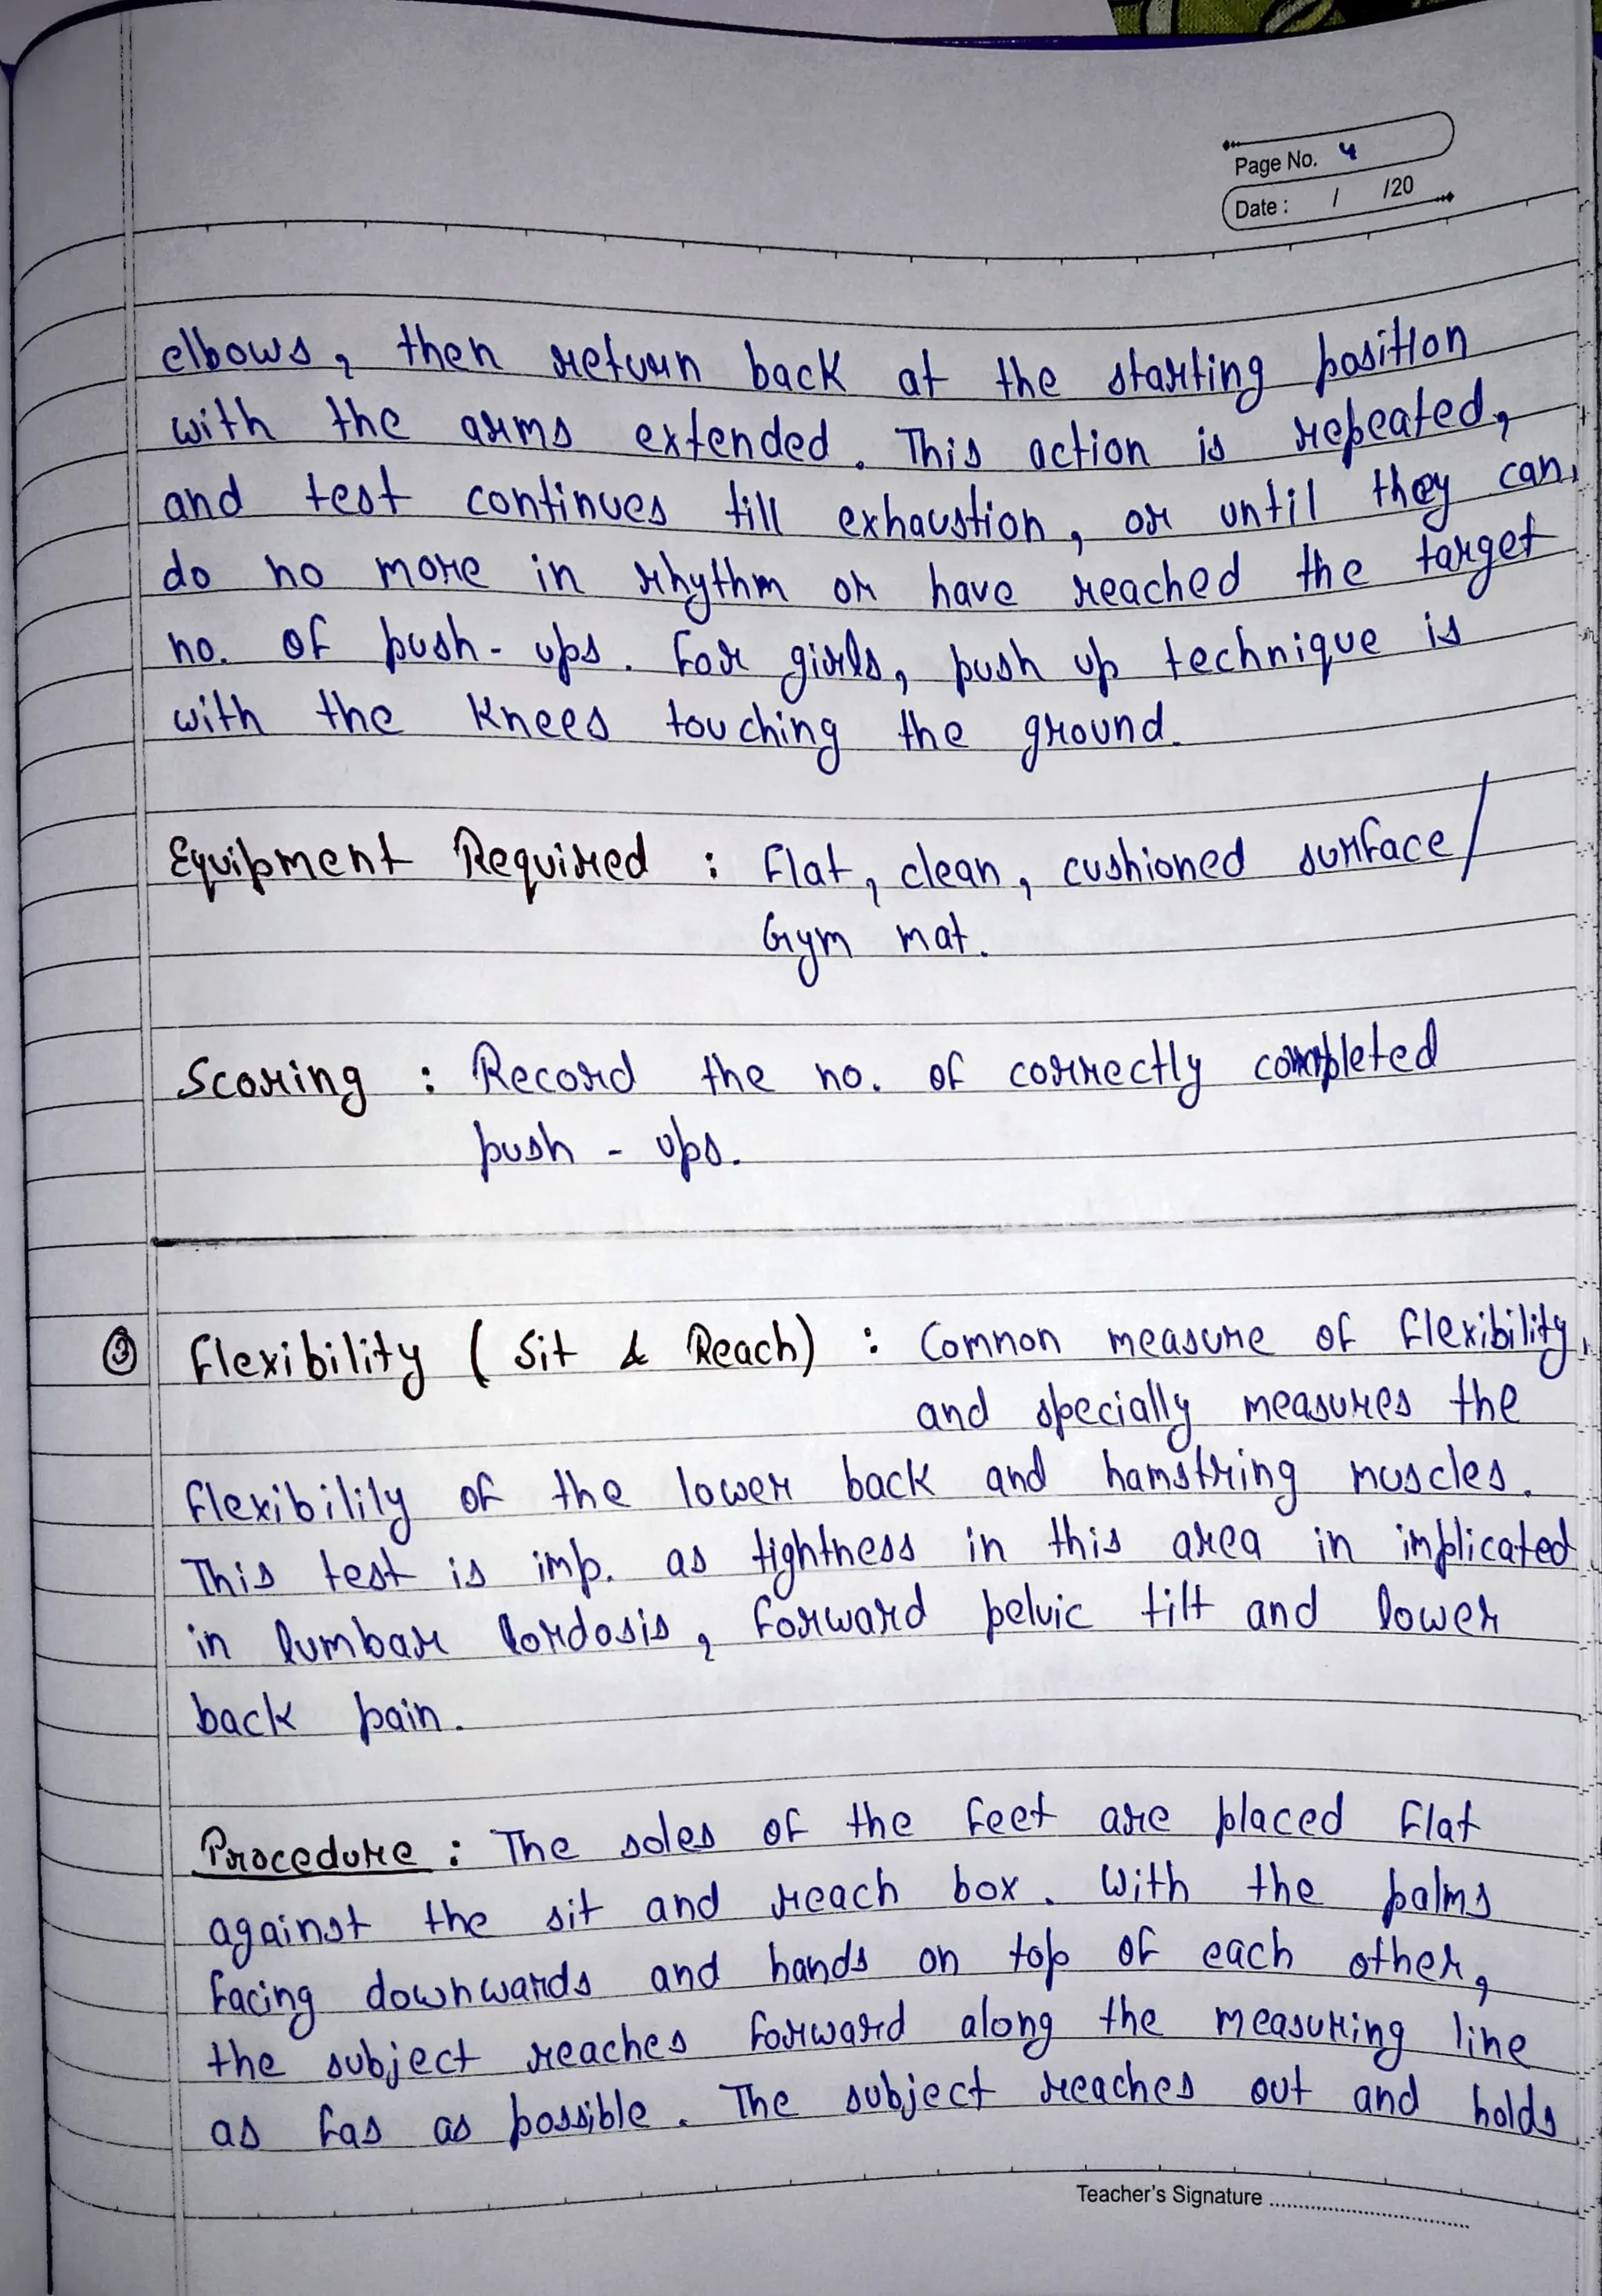 Page No. 4
Date : / /20
elbows, then return back at the starting position
with the arms extended. This action is repeated,
and test continues till exhaustion, or until they can
do no more in rhythm or have reached the target
no. of push-ups. For girls, push up technique is
with the knees touching the ground.
Equipment Required : Flat, clean, cushioned surface/
Gym mat.
Scoring : Record the no. of correctly completed
push-ups.
③ Flexibility (Sit & Reach) : Common measure of flexibility,
and specially measures the
flexibilily of the lower back and hamstring muscles.
This test is imp. as tightness in this area in implicated
in lumbar lordosis, forward pelvic tilt and lower
back pain.
Procedure : The soles of the feet are placed flat
against the sit and reach box. With the palms
facing downwards and hands on top of each other,
the subject reaches forward along the measuring line
as fas as possible. The subject reaches out and holds
Teacher's Signature